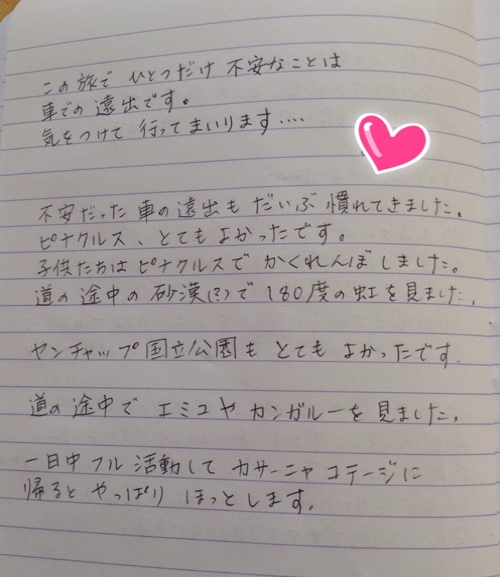 この旅でひとつだけ不安なことは
車での遠出です。
気をつけて行ってまいります....
不安だった車の遠出もだいぶ慣れてきました。
ピナクルス、とてもよかったです。
子供たちはピナクルスでかくれんぼしました。
道の途中の砂漠(?)で180度の虹を見ました。
ヤンチャップ国立公園もとてもよかったです。
道の途中でエミューやカンガルーを見ました。
一日中フル活動してカサーニャコテージに
帰るとやっぱりほっとします。